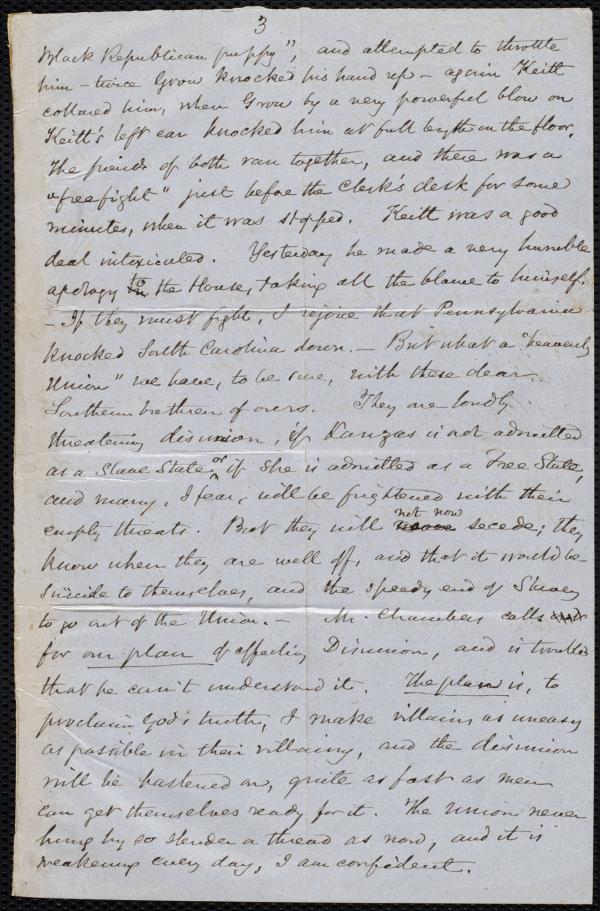 3
Black Republican puppy", and attempted to throttle
him – twice Grow knocked his hand up – again Keitt
collared him, when Grow by a very powerful blow on
Keitt's left ear knocked him at full length on the floor.
The friends of both ran together, and there was a
"free fight" just before the Clerk's desk for some
minutes, when it was stopped. Keitt was a good
deal intoxicated. Yesterday he made a very humble
apology to the House, taking all the blame to himself.
– If they must fight, I rejoice that Pennsylvania
knocked South Carolina down. – But what a "heavenly
Union" we have, to be sure, with these dear
Southern brethren of ours. They are loudly
threatening disunion, if Kanzas is not admitted
as a Slave State, or if she is admitted as a Free State,
and many, I fear, will be frightened with their
empty threats. But they will not now secede; they
know when they are well off, and that it would be
suicide to themselves, and the speedy end of Slavery
to go out of the Union. – Mr. Chambers calls
for our plan of effecting Disunion, and is troubled
that he can't understand it. The plan is, to
proclaim God's truth, & make villains as uneasy
as possible in their villainy, and the disunion
will be hastened on, quite as fast as men
can get themselves ready for it. The Union never
hung by so slender a thread as now, and it is
weakening every day, I am confident.